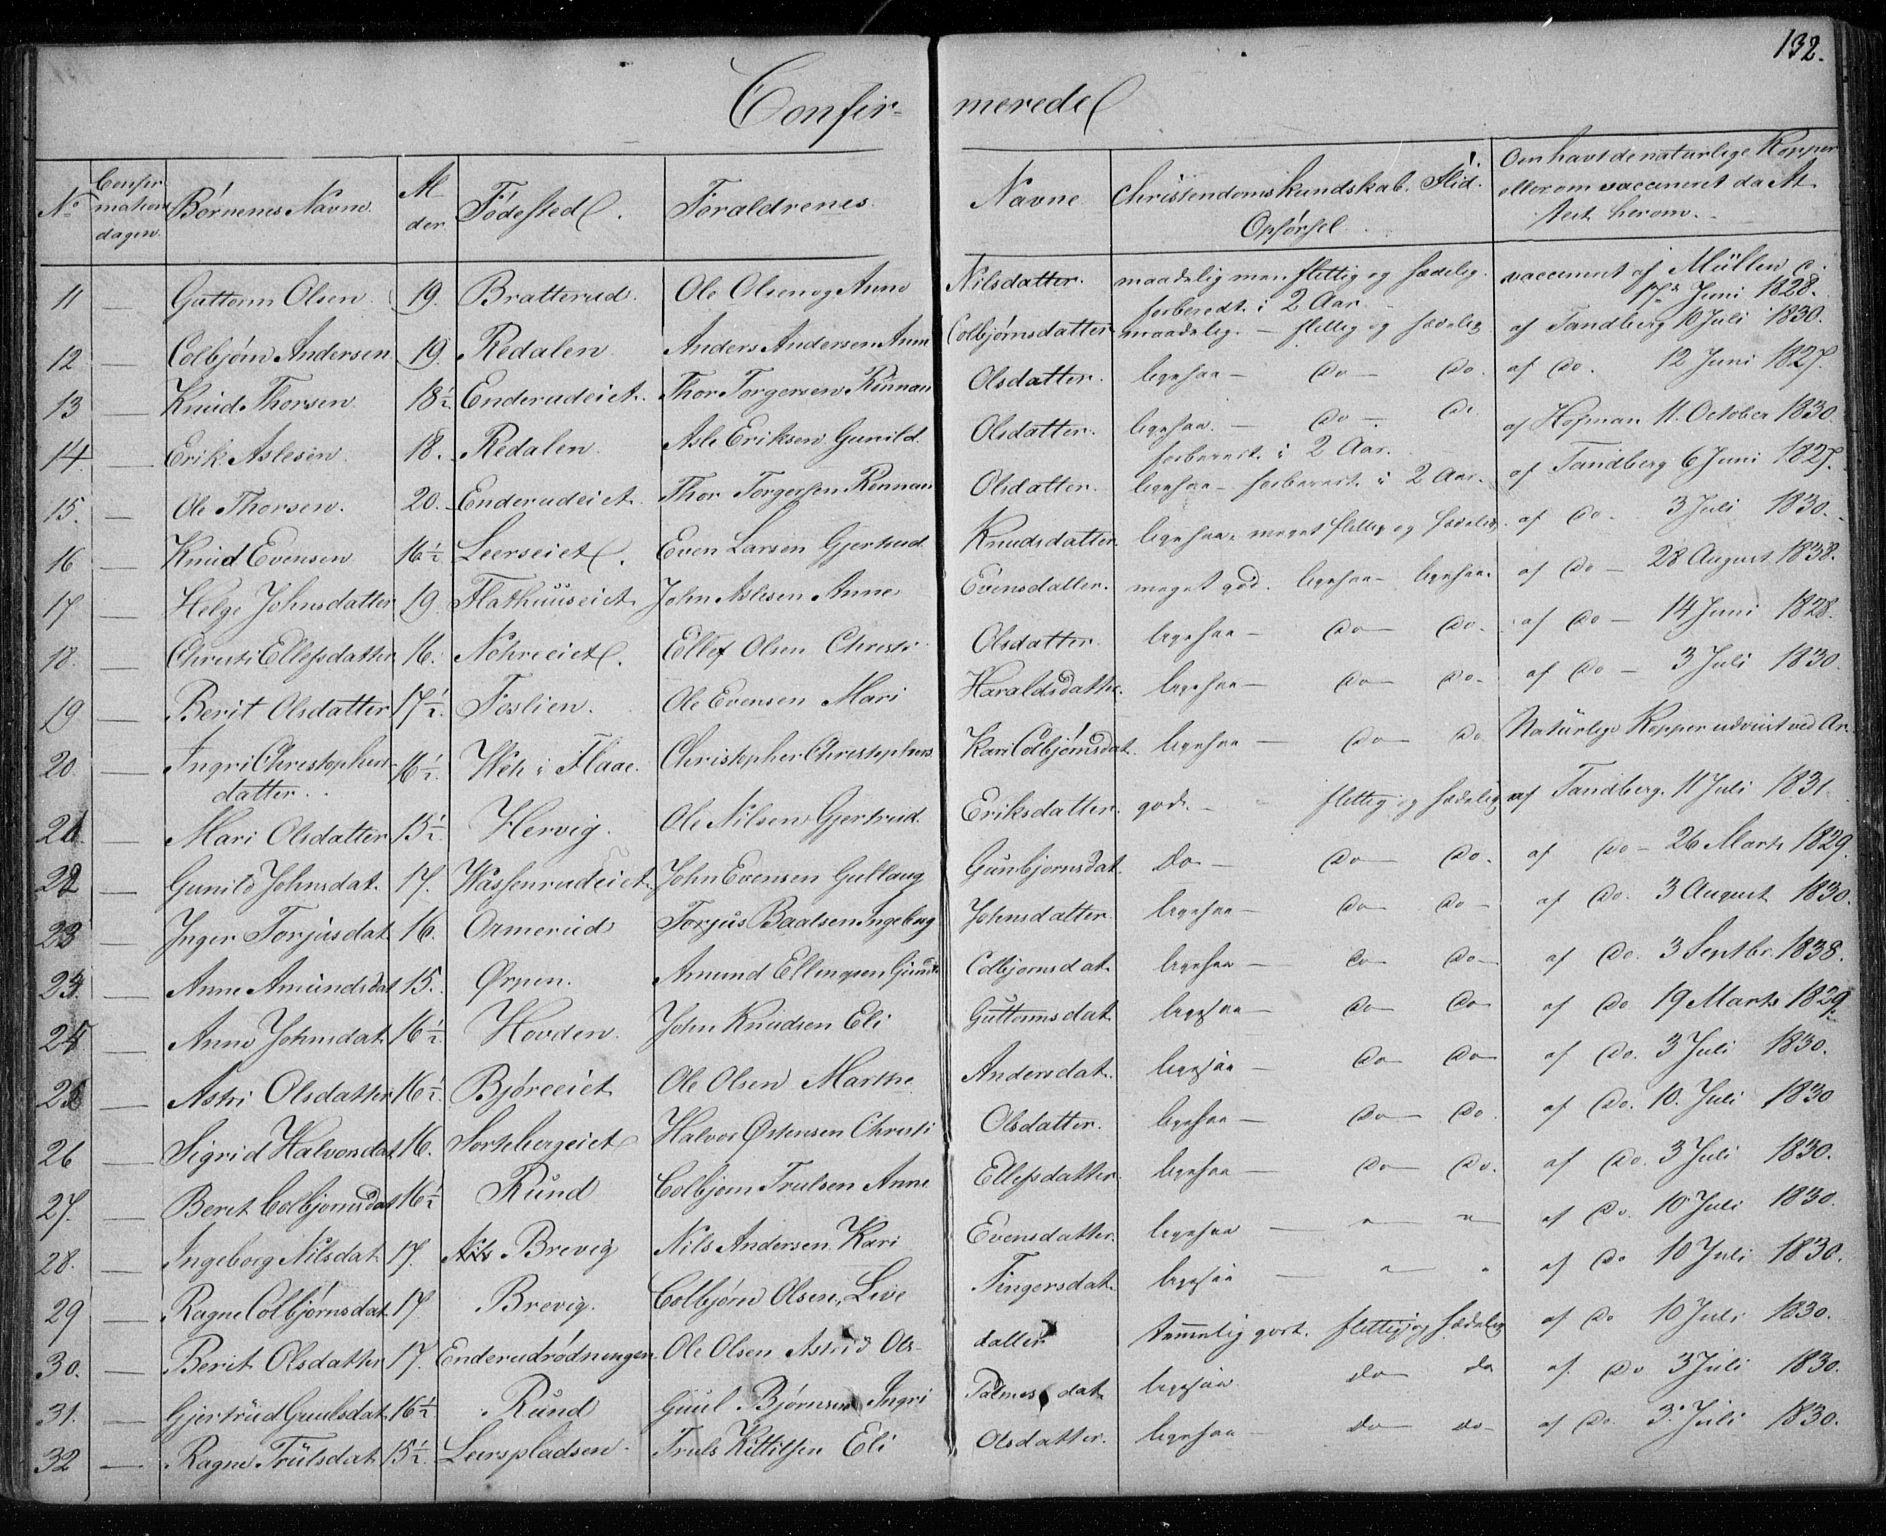 132.
Confir- merede
No Confirmations dagen. Børnenes Navne. Alder Fødested. Forældrenes Navne Christendomskundskab. Flid. Opførsel Om havt de naturlige Kopper eller om vaccineret da Attest herom.
11 — Guttorm Olsen. 19. Bratterud. Ole Olsen og Anne Nilsdatter. maadelig men flittig og sædelig. forberedt i 2 Aar. vaccineret af Müller 17de Juni 1828.
12 — Colbjørn Andersen 19. Redalen Anders Andersen Anne Colbjørnsdatter maadelig. — flittig og sædelig af Tandberg 10 Juli 1830.
13 — Knud Thorsen 18½ Enderudeiet. Thor Torgersen Rønnau Olsdatter. ligesaa — do — do. af do. 12 Juni 1827.
14. — Erik Aslesen. 18. Redalen. Asle Eriksen Gunild Olsdatter. ligesaa. — do —. do forberedt. i 2 Aar. af Hofman 11. October 1830
15. — Ole Thorsen. 20. Enderudeiet. Thor Torgersen Rønnau Olsdatter. ligesaa — forberedt i 2 Aar. af Tandberg 6 Juni 1827.
16 — Knud Evensen 16½ Leerseiet. Even Larsen Gjertrud Knudsdatter. ligesaa, meget flittig og sædelig. af do. 3 Juli 1830.
17 — Helge Johnsdatter 19 Flathuuseiet John Aslesen Anne Evensdatter. meget god. ligesaa — ligesaa. af do — 28 August 1838.
18. — Christi Ellefsdatter 16. Nohreeiet. Ellef Olsen Christi Olsdatter. ligesaa — do — do. af do — 14 Juni 1828.
19 — Berit Olsdatter 17½. Foslien. Ole Evensen Mari Haraldsdatter. ligesaa — do — do. af do — 3 Juli 1830.
20. — Ingri Christophersdatter. 16½. Weh i Flaae. Christopher Christophers Kari Colbjørnsdat. ligesaa — do — do Naturlige Kopper udviist ved Ar
21. Mari Olsdatter 15½ Hervig. Ole Nilsen Gjertrud Eriksdatter. god. — flittig og sædelig af Tandberg. 11 Juli 1831
22 — Gunild Johnsdat. 17. Wassenrudeiet John Evensen Gullaug Gunbjornsdat. do — do — do. af do — 26 Marts 1829.
23 — Inger Torjusdat 16. Ormerud Torjus Baalsen Ingeborg Johnsdatter. ligesaa — do — do — af do. 3 August 1830.
24. — Anne Amundsdat 15. Ørpen. Amund Ellingsen Colbjornsdat ligesaa — do — do — af do. 3 Septbr. 1838.
25 — Anne Johnsdat. 16½. Hovden. John Knudsen Eli Guttormsdat ligesaa — do — do — af do 19 Marts 1829.
— Astri Olsdatter 16½. Bjøreeiet Ole Olsen Marthe Andersdat. ligesaa — do — do — af do. 3 Juli 1830.
26 — Sigrid Halvorsdat 16. Sortebergeiet Halvor Østensen Christi Olsdatter. ligesaa — do — do. af do. 10. Juli 1830
27. — Berit Colbjørnsdat 16½ Rund Colbjørn Trulsen Anne Ellefsdatter. ligesaa — do — do. af do. 3 Juli 1830.
28. — Ingeborg Nilsdat 17. Nils Brevig Nils Andersen Kari Evensdatter. ligesaa — " — " — af do. 10 Juli 1830.
29 — Ragne Colbjørnsdat 17 Brevig. Colbjørn Olsen, Live Fingersdat. ligesaa — " — " af do 10 Juli 1830.
30. — Berit Olsdatter 17. Enderudrødningen. Ole Olsen Astrid Ols- datter temmelig godt. flittig og sædelig af do 10 Juli 1830.
31. — Gjertrud Guulsdat. 16½ Rund Guul Bjørnsen Ingri Palmesdat ligesaa do — do af. do 3 Juli 1830.
32 — Ragne Trulsdat 15½. Leerspladsen. Truls Kittilsen Eli Olsdatter. ligesaa — do — do — af do. 3. Juli 1830.